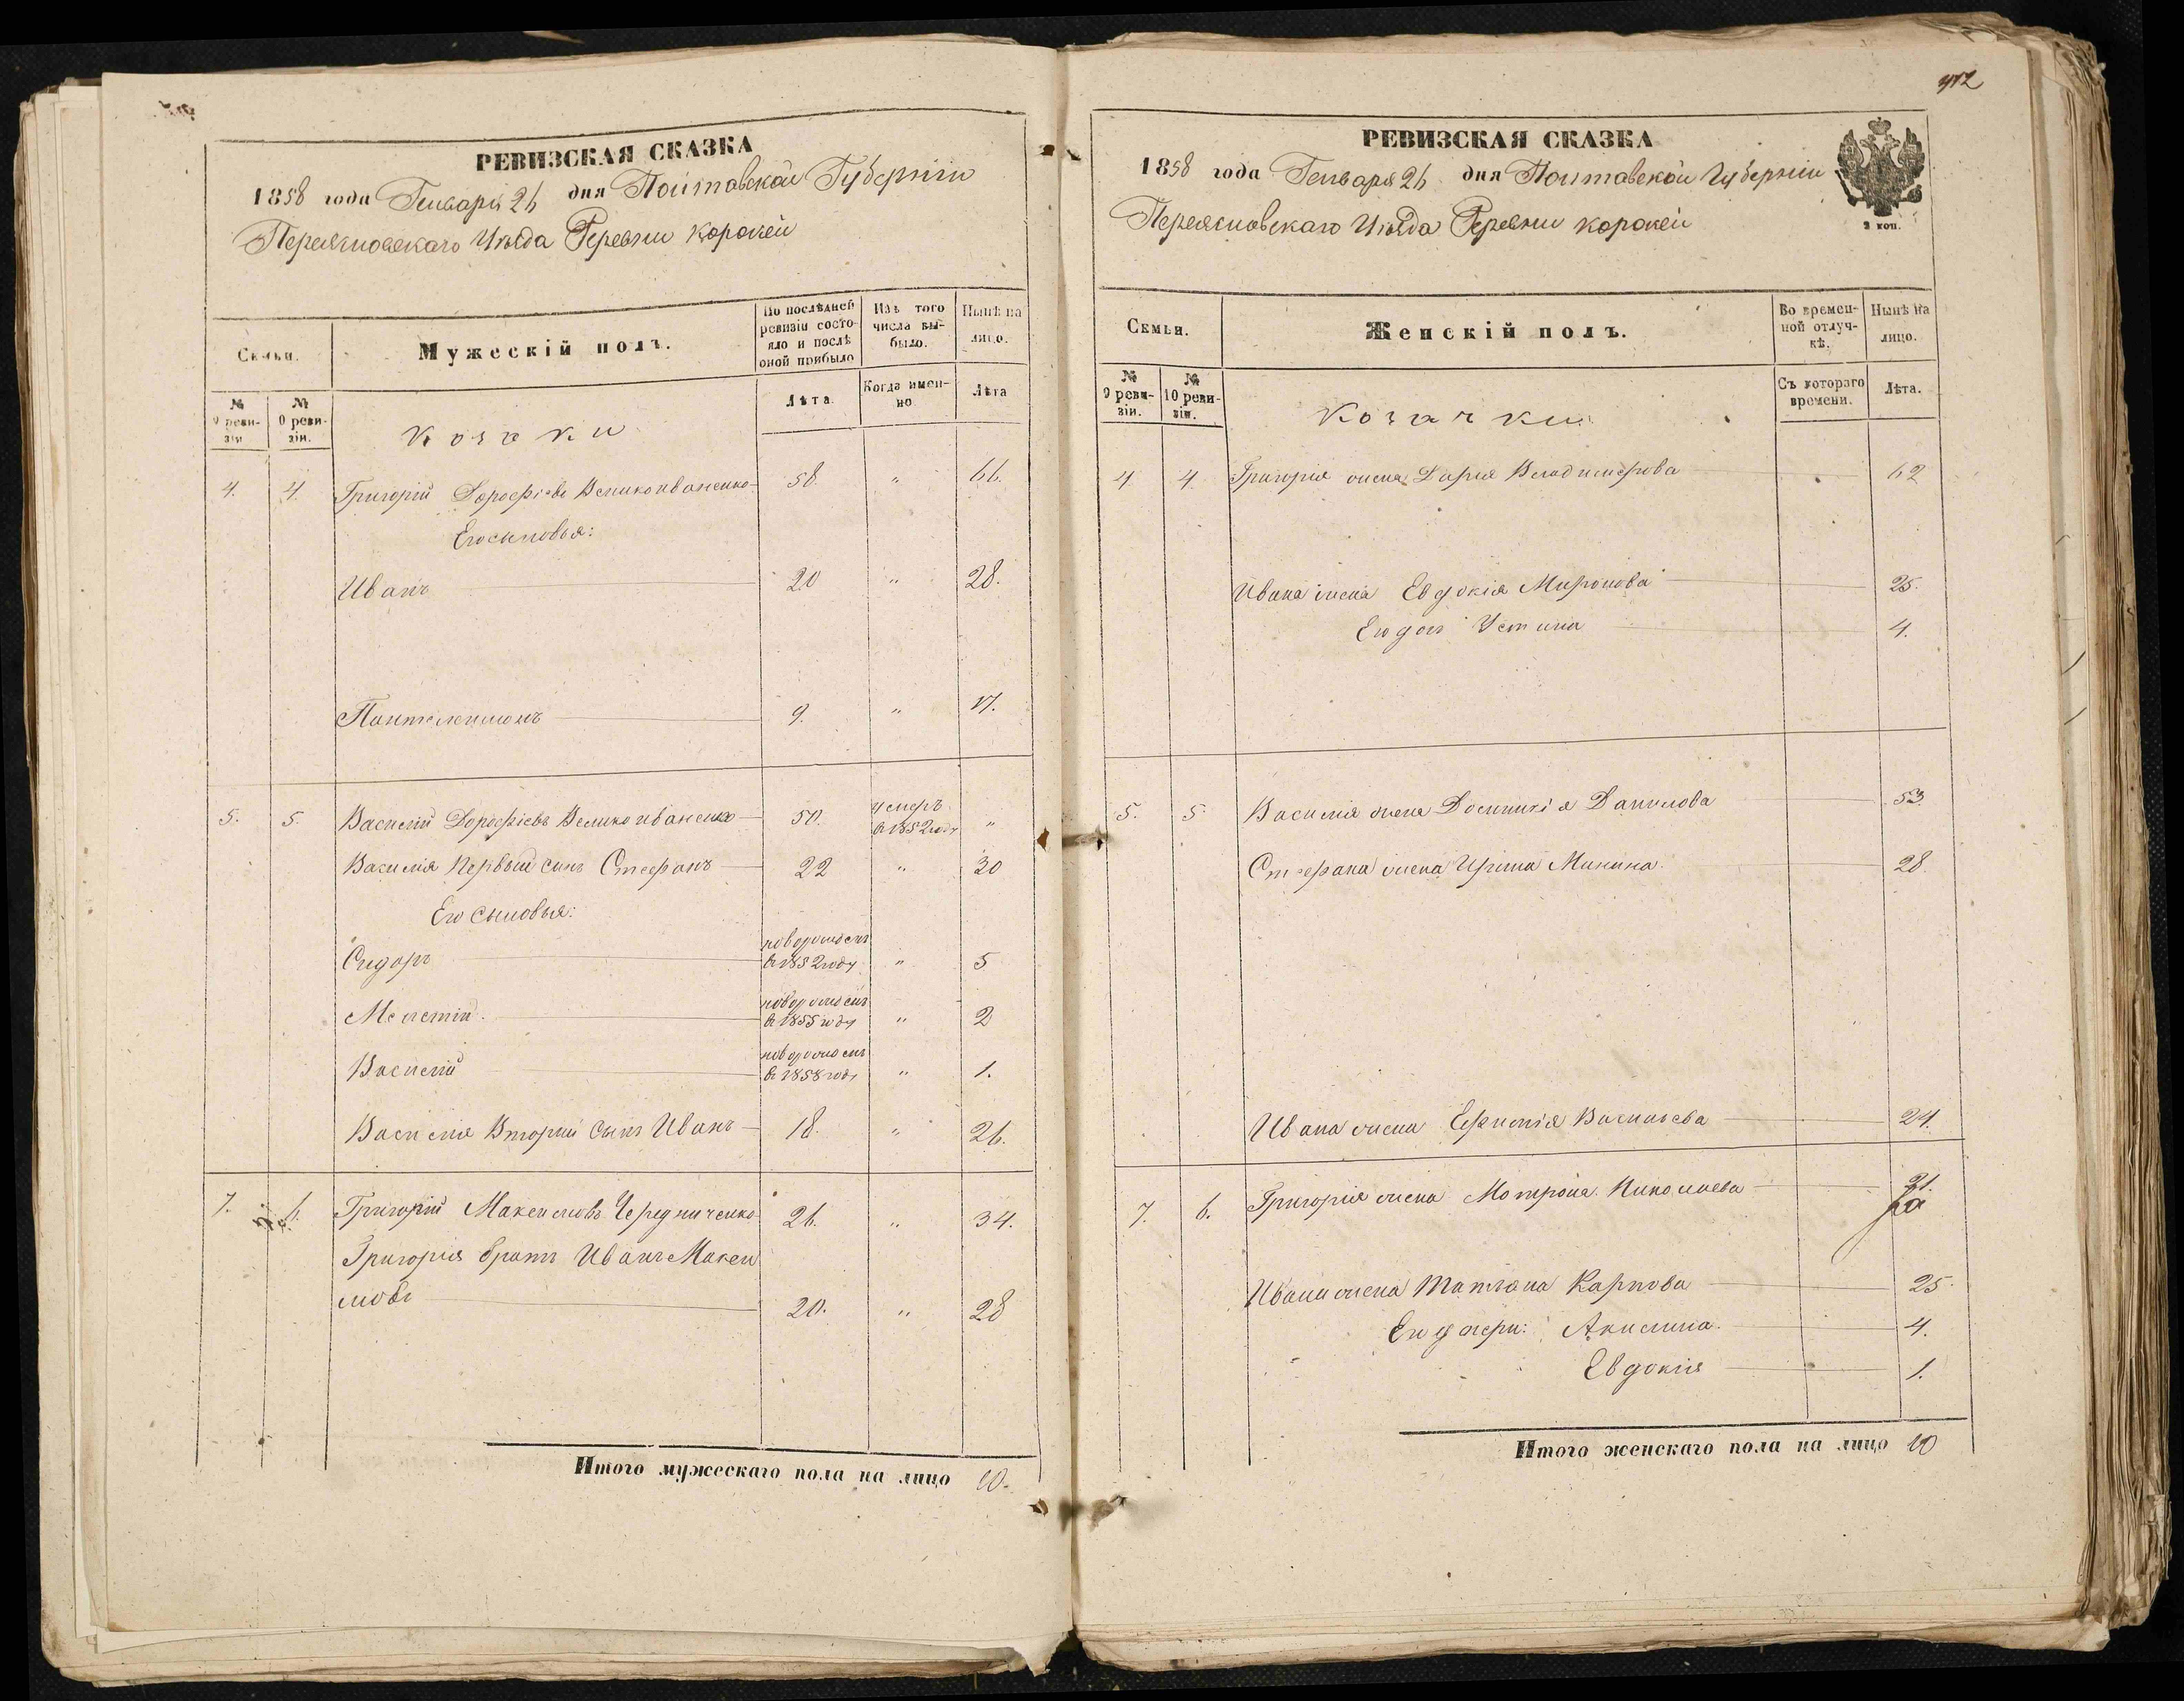 РЕВИЗСКАЯ СКАЗКА
1858 года Генваря 26 дня Полтавской Губерніи
Переяславскаго Уѣзда Деревни
Семьи.
Мужескій полъ.
По послѣдней ревизіи состояло и послѣ оной прибыло
Изъ того числа выбыло.
Нынѣ на лицо.
№ 9 ревизіи
№ 10 ревизіи.
Козаки
Лѣта.
Когда именно
Лѣта
4. 4. Григорій Дорофіевъ Великоиваненко 58. " 66.
Его сыновья:
Иванъ 20 " 28.
Пантелеимонъ 9. " 17.
5. 5. Василій Дорофіевъ Великоиваненко 50. умеръ в 1852 году "
Василія Первый сынъ Стефанъ 22 " 30
Его сыновья:
Сидоръ новорожденъ в 1852 году " 5
Мелетій. новорожденъ в 1855 году " 2
Василій новорожденъ в 1858 году " 1.
Василія Вторый сынъ Иванъ 18. " 26.
7. 6. Григорій Максимовъ Чередниченко 26. " 34.
Григорія братъ Иванъ Макси
мовъ 20. " 28
Итого мужескаго пола на лицо 10.
412
РЕВИЗСКАЯ СКАЗКА
1858 года Генваря 26 дня Полтавской Губерніи
Переяславскаго Уѣзда Деревни
2 коп.
Семьи.
Женскій полъ.
Во временной отлучкѣ.
Нынѣ на лицо.
№ 9 ревизіи.
№ 10 ревизіи.
Козачки
Съ котораго времени.
Лѣта.
4 4 Григорія жена Дарія Владимерова 62
Ивана жена Евдокія Миронова 25.
Его дочь Устина 4.
5. 5 Василія жена Домникія Данилова 53.
Стефана жена Ирина Минина. 28.
Ивана жена Ефимія Васильева 24.
7. 6. Григорія жена Матрона Николаева 31.
Ивана жена Татіана Карпова 25.
Его дочери: Акилина. 4.
Евдокія 1.
Итого женскаго пола на лицо 10